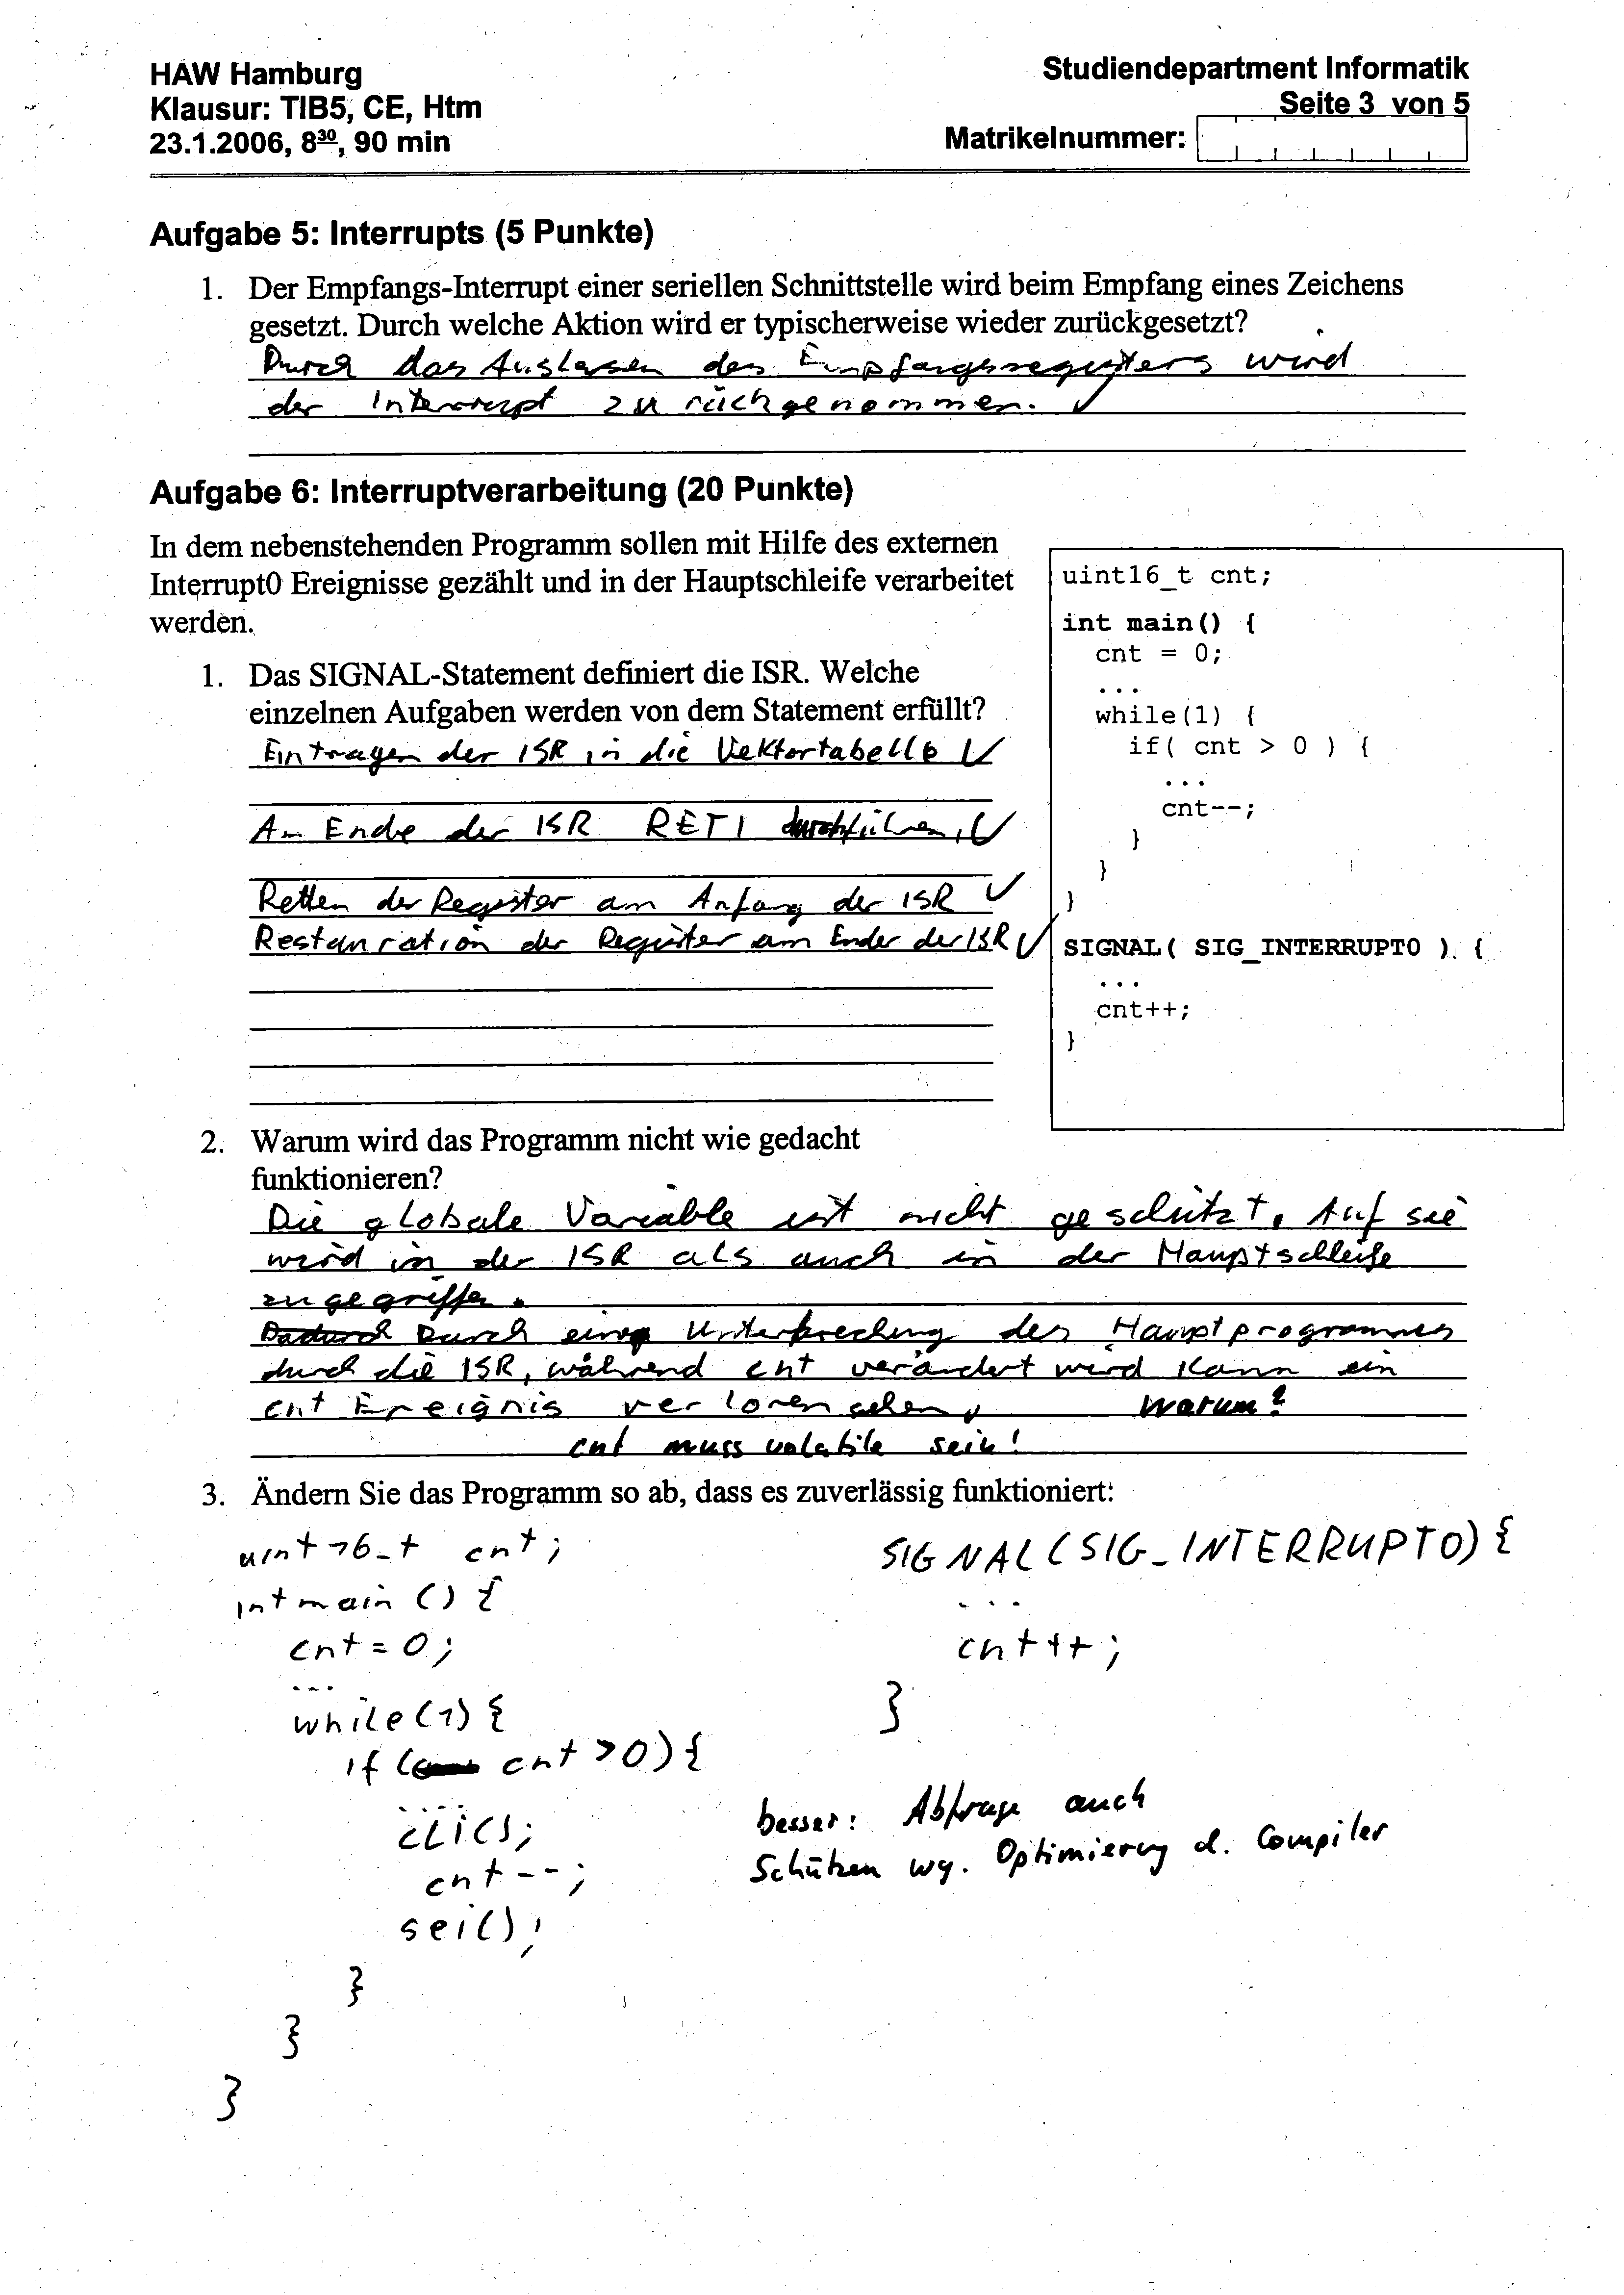 HAW Hamburg
Klausur: TIB5, CE, Htm
23.1.2006, 8³⁰, 90 min
Studiendepartment Informatik
Seite 3 von 5
Matrikelnummer:
Aufgabe 5: Interrupts (5 Punkte)
1. Der Empfangs-Interrupt einer seriellen Schnittstelle wird beim Empfang eines Zeichens
gesetzt. Durch welche Aktion wird er typischerweise wieder zurückgesetzt?
Durch das Auslesen des Empfangsregisters wird
der Interrupt zurückgenommen. ✓
Aufgabe 6: Interruptverarbeitung (20 Punkte)
In dem nebenstehenden Programm sollen mit Hilfe des externen
Interrupt0 Ereignisse gezählt und in der Hauptschleife verarbeitet
werden.
1. Das SIGNAL-Statement definiert die ISR. Welche
einzelnen Aufgaben werden von dem Statement erfüllt?
Eintragen der ISR in die Vektortabelle ✓
Am Ende der ISR RETI durchführen, ✓
Retten der Register am Anfang der ISR ✓
Restauration der Register am Ender der ISR ✓
uint16_t cnt;
int main() {
cnt = 0;
...
while(1) {
if( cnt > 0 ) {
...
cnt--;
}
}
}
SIGNAL( SIG_INTERRUPT0 ) {
...
cnt++;
}
2. Warum wird das Programm nicht wie gedacht
funktionieren?
Die globale Variable ist nicht geschützt. Auf sie
wird in der ISR als auch in der Hauptschleife
zugegriffen.
Dadurch Durch eine Unterbrechung des Hauptprogrammes
durch die ISR, während cnt verändert wird kann ein
cnt Ereignis verloren gehen ✓ Warum?
cnt muss volatile sein!
3. Ändern Sie das Programm so ab, dass es zuverlässig funktioniert:
uint16_t cnt;
int main () {
cnt = 0;
...
while(1) {
if ( cnt > 0) {
....
cli();
cnt--;
sei();
}
}
}
SIGNAL (SIG_INTERRUPT0) {
...
cnt++;
}
besser: Abfrage auch
Schützen wg. Optimierung d. Compiler